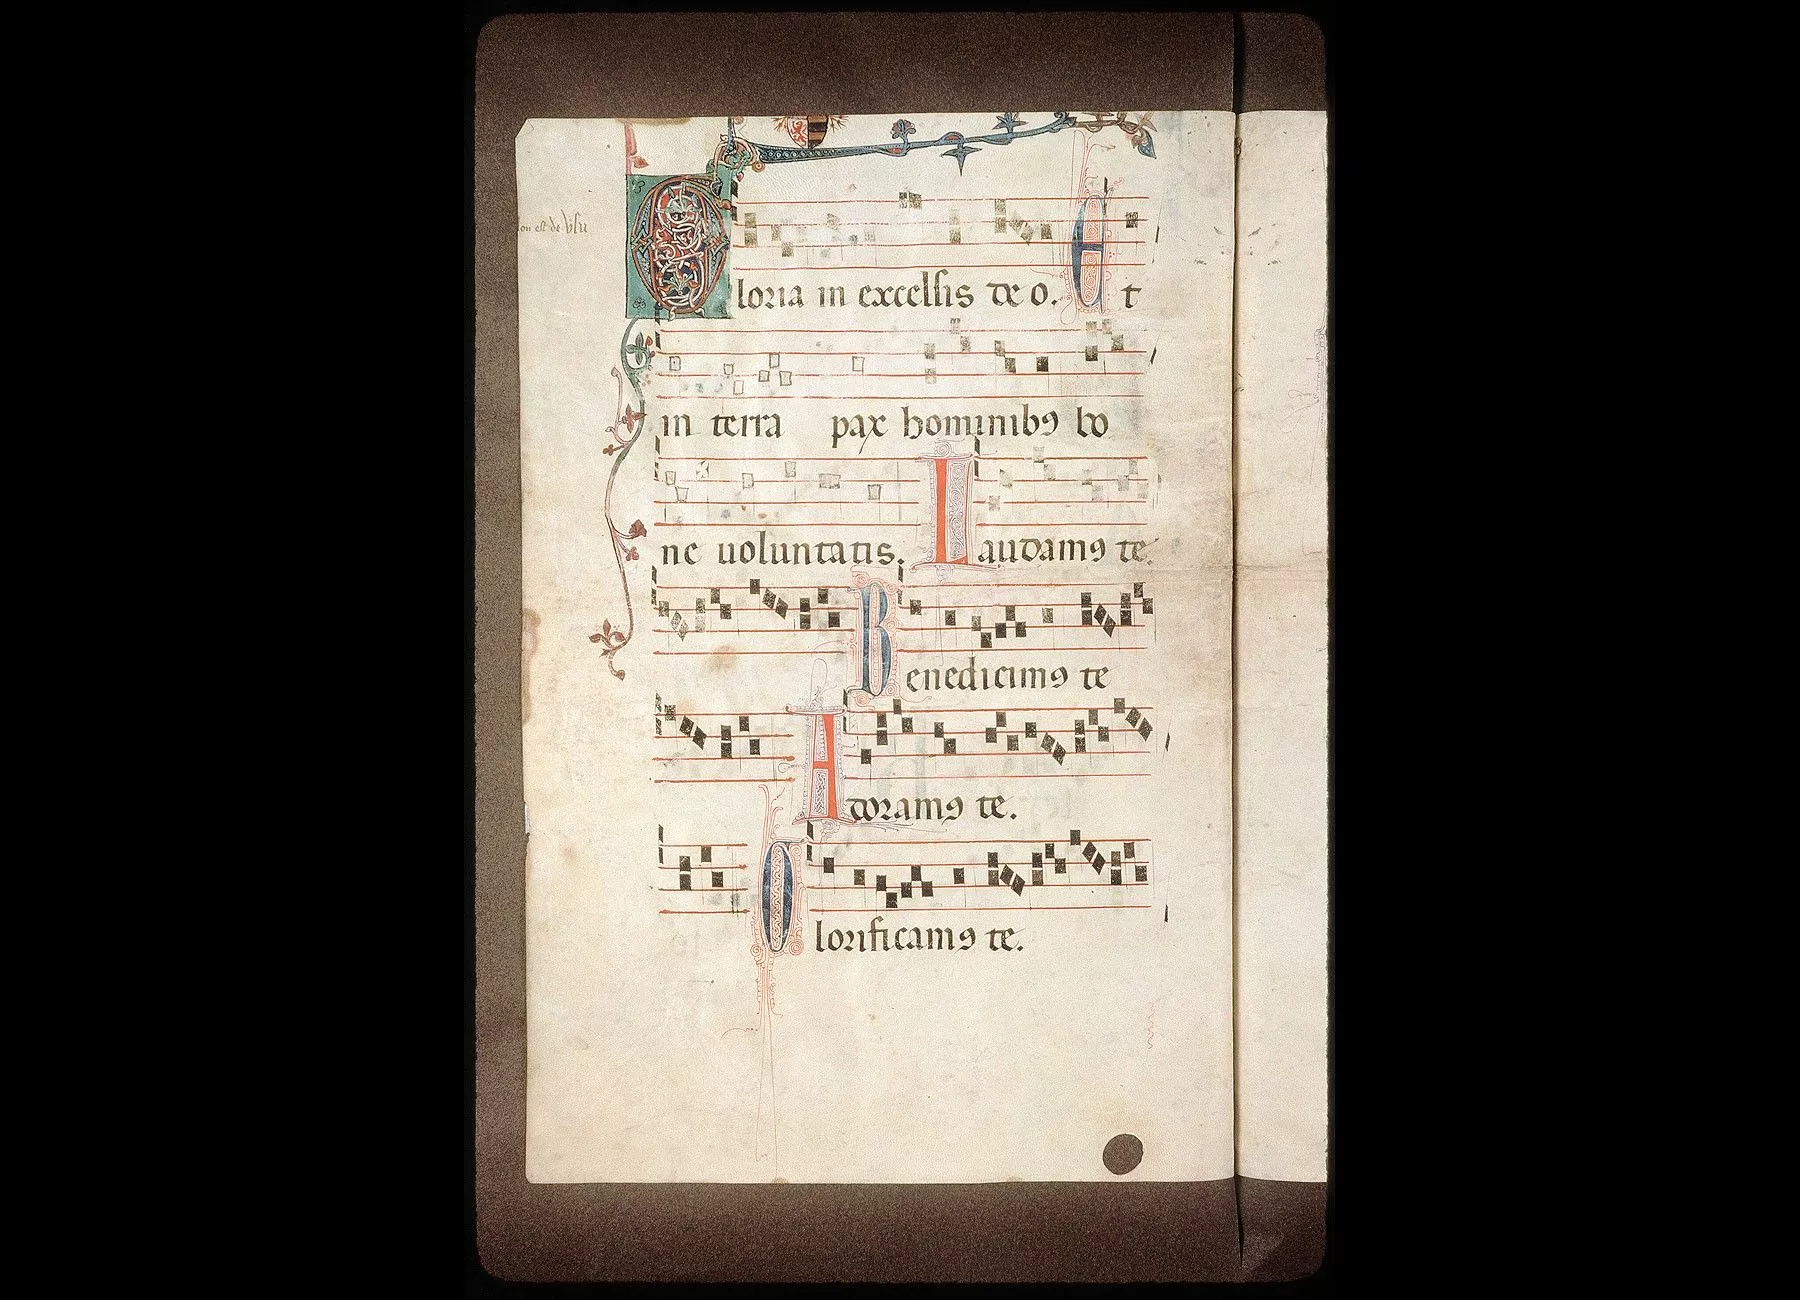 on est de usu
Gloria in excelsis deo. Et
in terra pax hominibꝯ bo
ne uoluntatis. Laudamꝯ te.
Benedicimꝯ te
Adoramꝯ te.
Glorificamꝯ te.